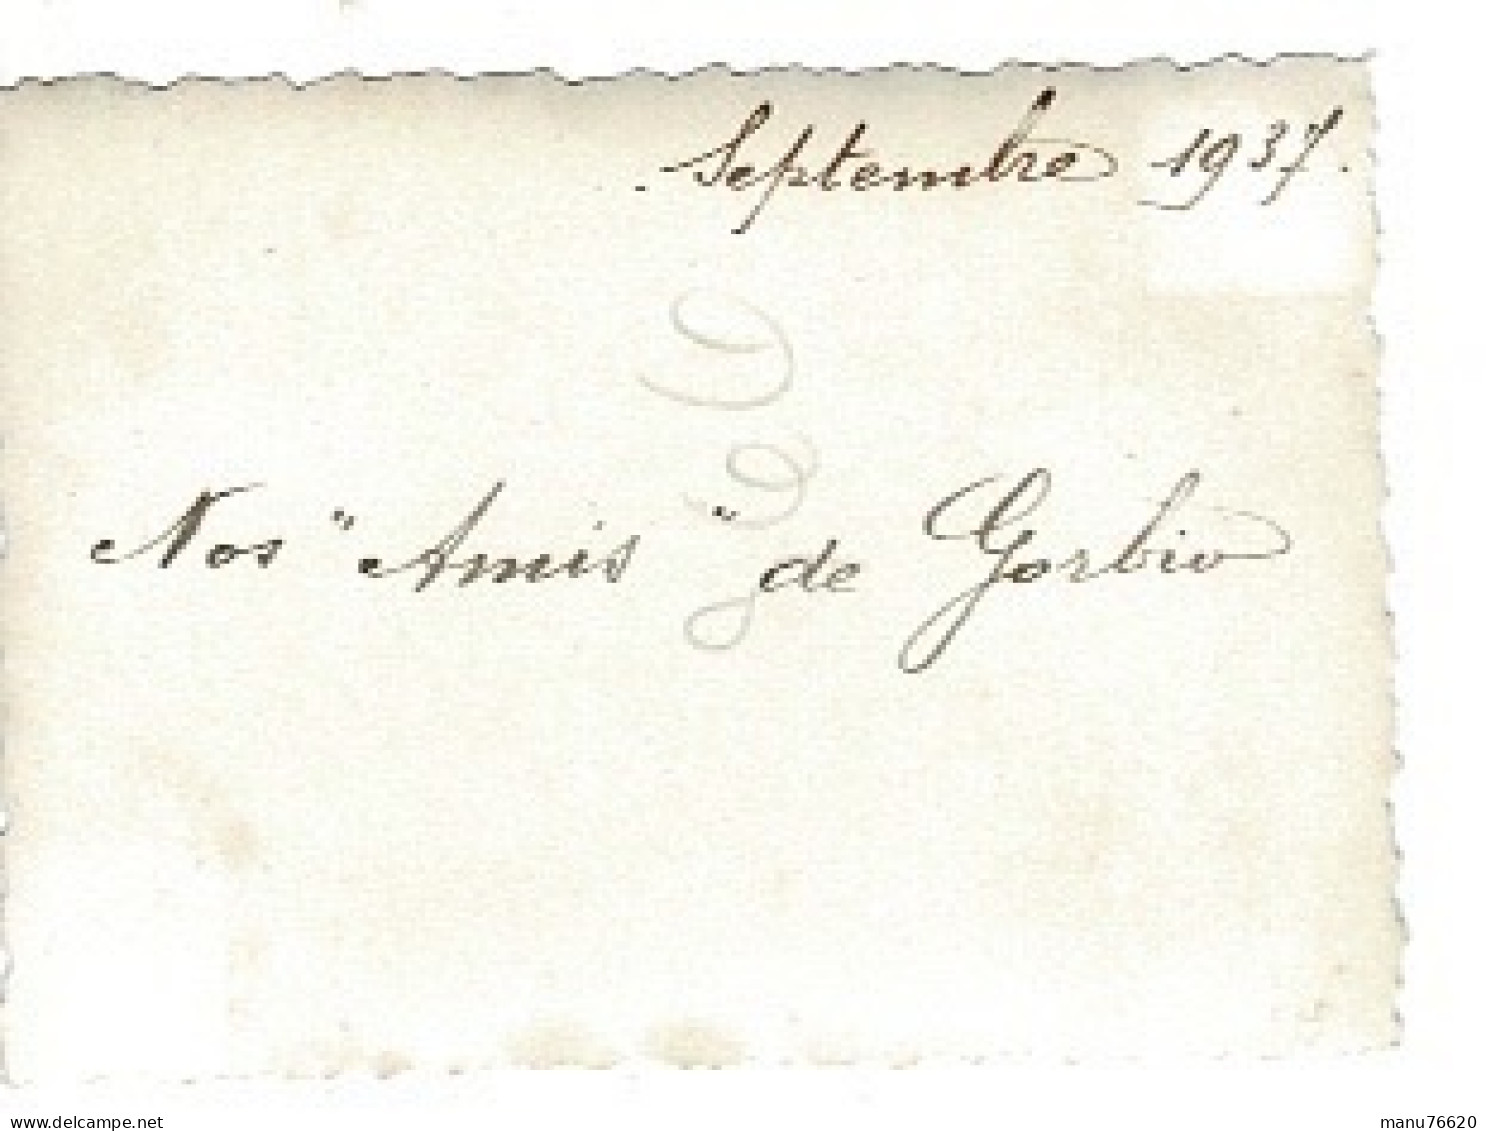 . Septembre 1937.
Nos "Amis" de Gorbio
www.delcampe.net
manu76620